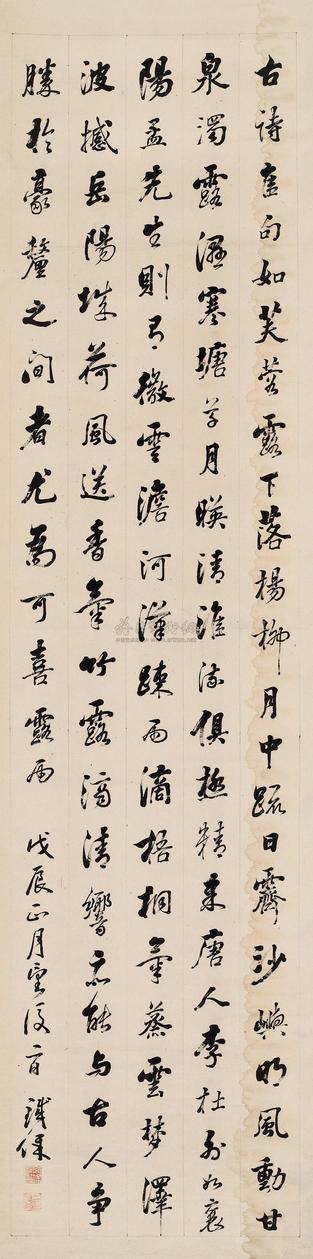 古詩奎句如芙蓉露下落楊柳月中疏日霽沙嶼明風動甘
泉濁露濕寒塘草月暎清淮流俱極精來唐人李杜外如襄
陽孟先生則有微雲澹河漢疎雨滴梧桐氣蒸雲夢澤
波撼岳陽城荷風送香氣竹露滴清響亦能与古人爭
勝於豪釐之間者尤為可喜露雨
戊辰正月望後一日 鐵保